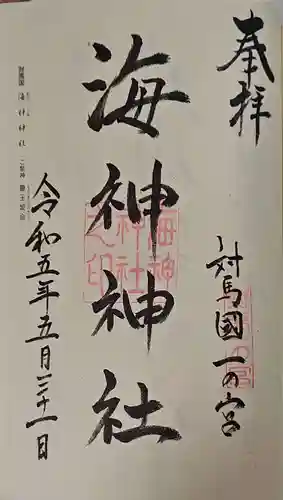 奉拝
対馬國一の宮
海神神社
海神
神社
之印
令和五年五月三十一日
対馬国
海神神社